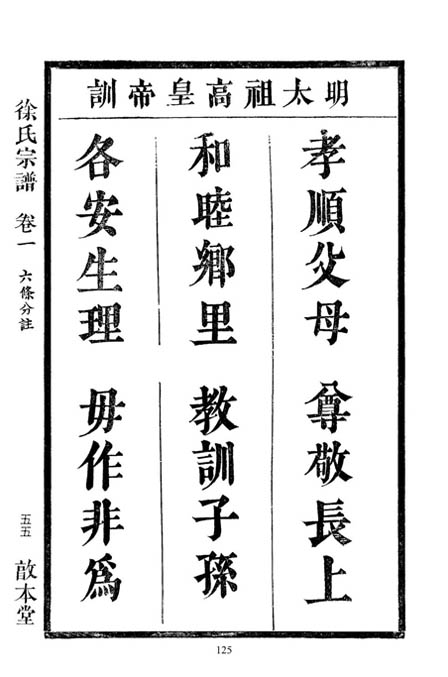 明太祖高皇帝訓
孝順父母 尊敬長上
和睦鄉里 教訓子孫
各安生理 毋作非為
徐氏宗譜 卷一 六條分註 五五 敨本堂
125